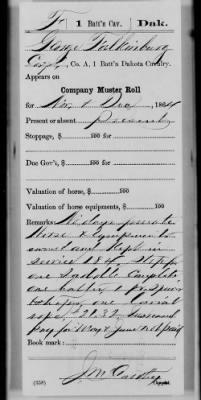 F | 1 Batt'n Cav. | Dak.
George Falkinburg
Corp'l, Co. A, 1 Batt'n Dakota Cavalry.
Appears on
Company Muster Roll
for Nov & Dec, 1864
Present or absent Present
Stoppage, $ 100 for
Due Gov't, $ 100 for
Valuation of horse, $ 100
Valuation of horse equipments, $ 100
Remarks: days private
Horse & Equipments
owned and kept in
service 1864. Stop for
one saddle complete
one halter 1 pr Spurs
one Lariat
rope, $21.32.
pay for May & June not paid
Book mark:
(358) Copyist.